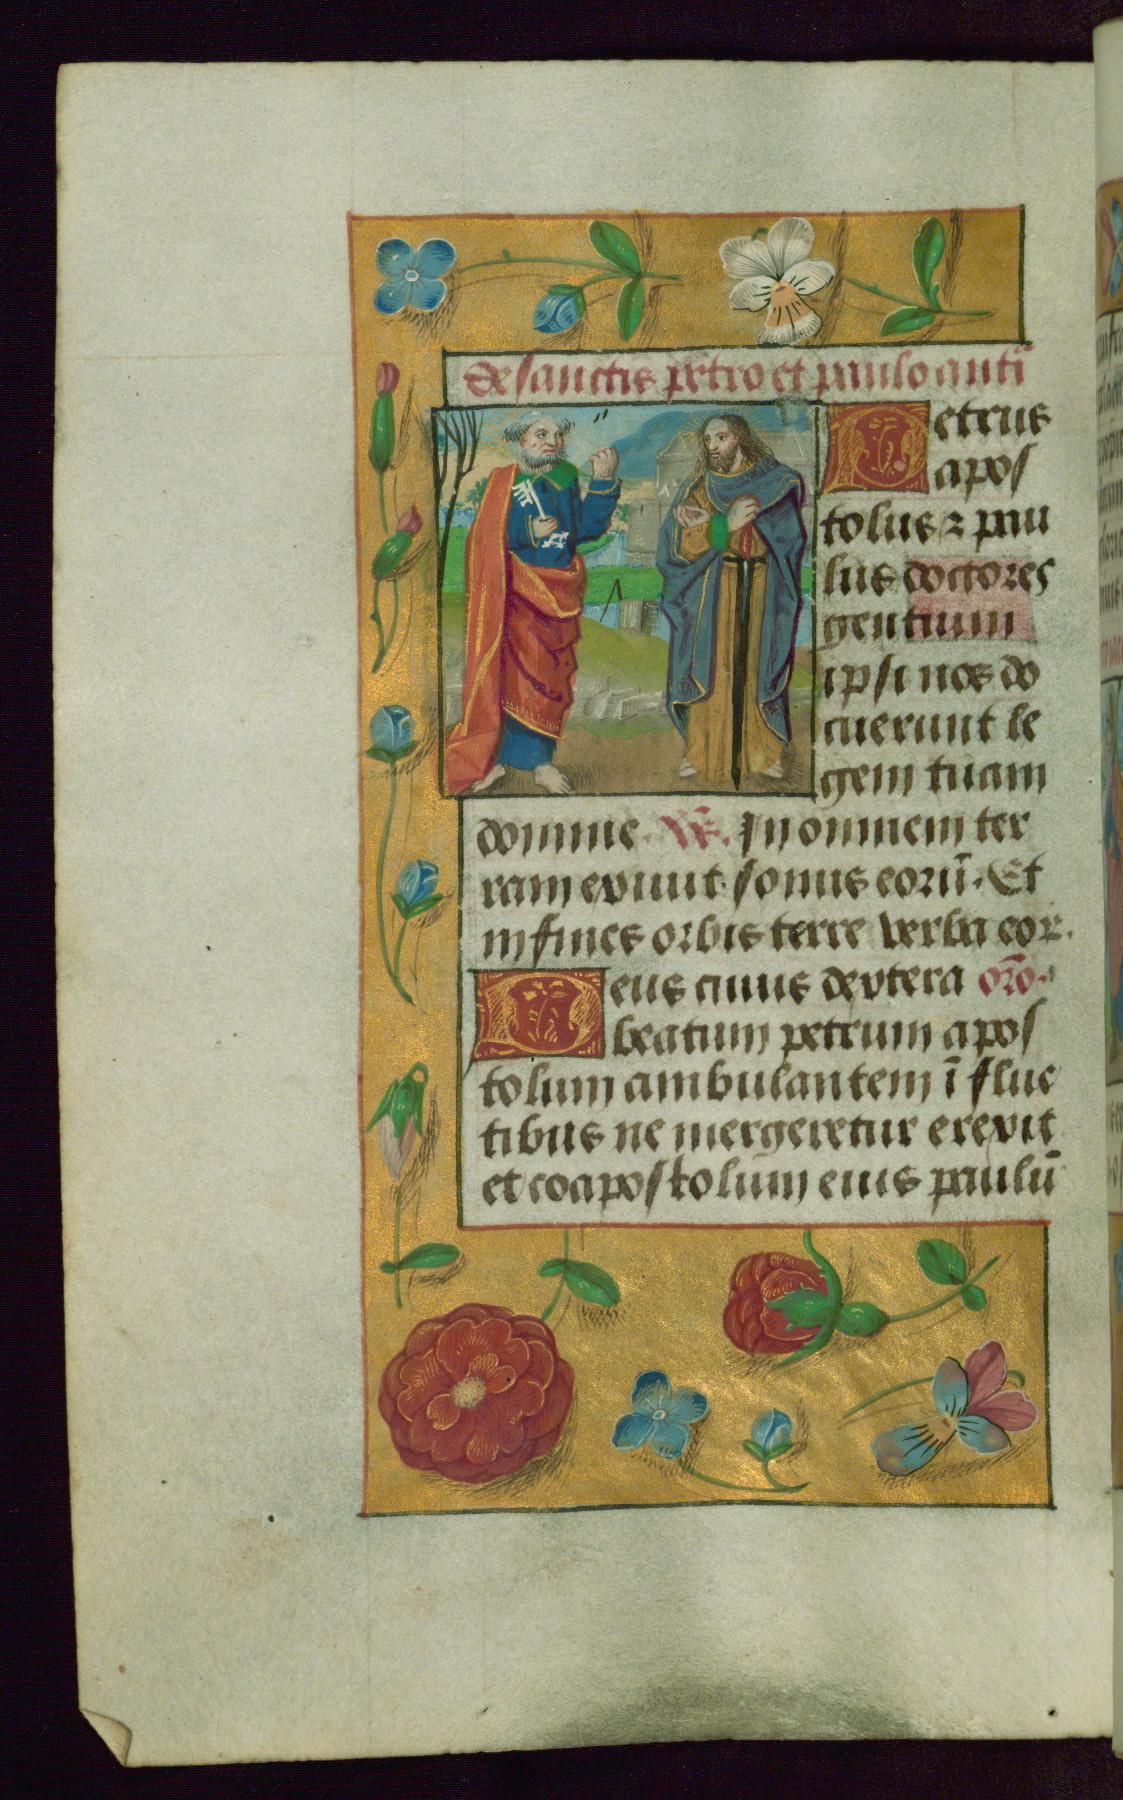 De sanctis petro et paulo anti͞
Petrus
apos
tolus ⁊ pau
lus doctores
gentium
ipsi nos do
cuerunt le
gem tuam
domine. V͞. In omnem ter
ram exiuit sonus eorū. Et
in fines orbis terre verba eor.
Deus cuius dextera or͞o.
beatum petrum apos
tolum ambulantem ī fluc
tibus ne mergeretur erexit
et coapostolum eius paulū